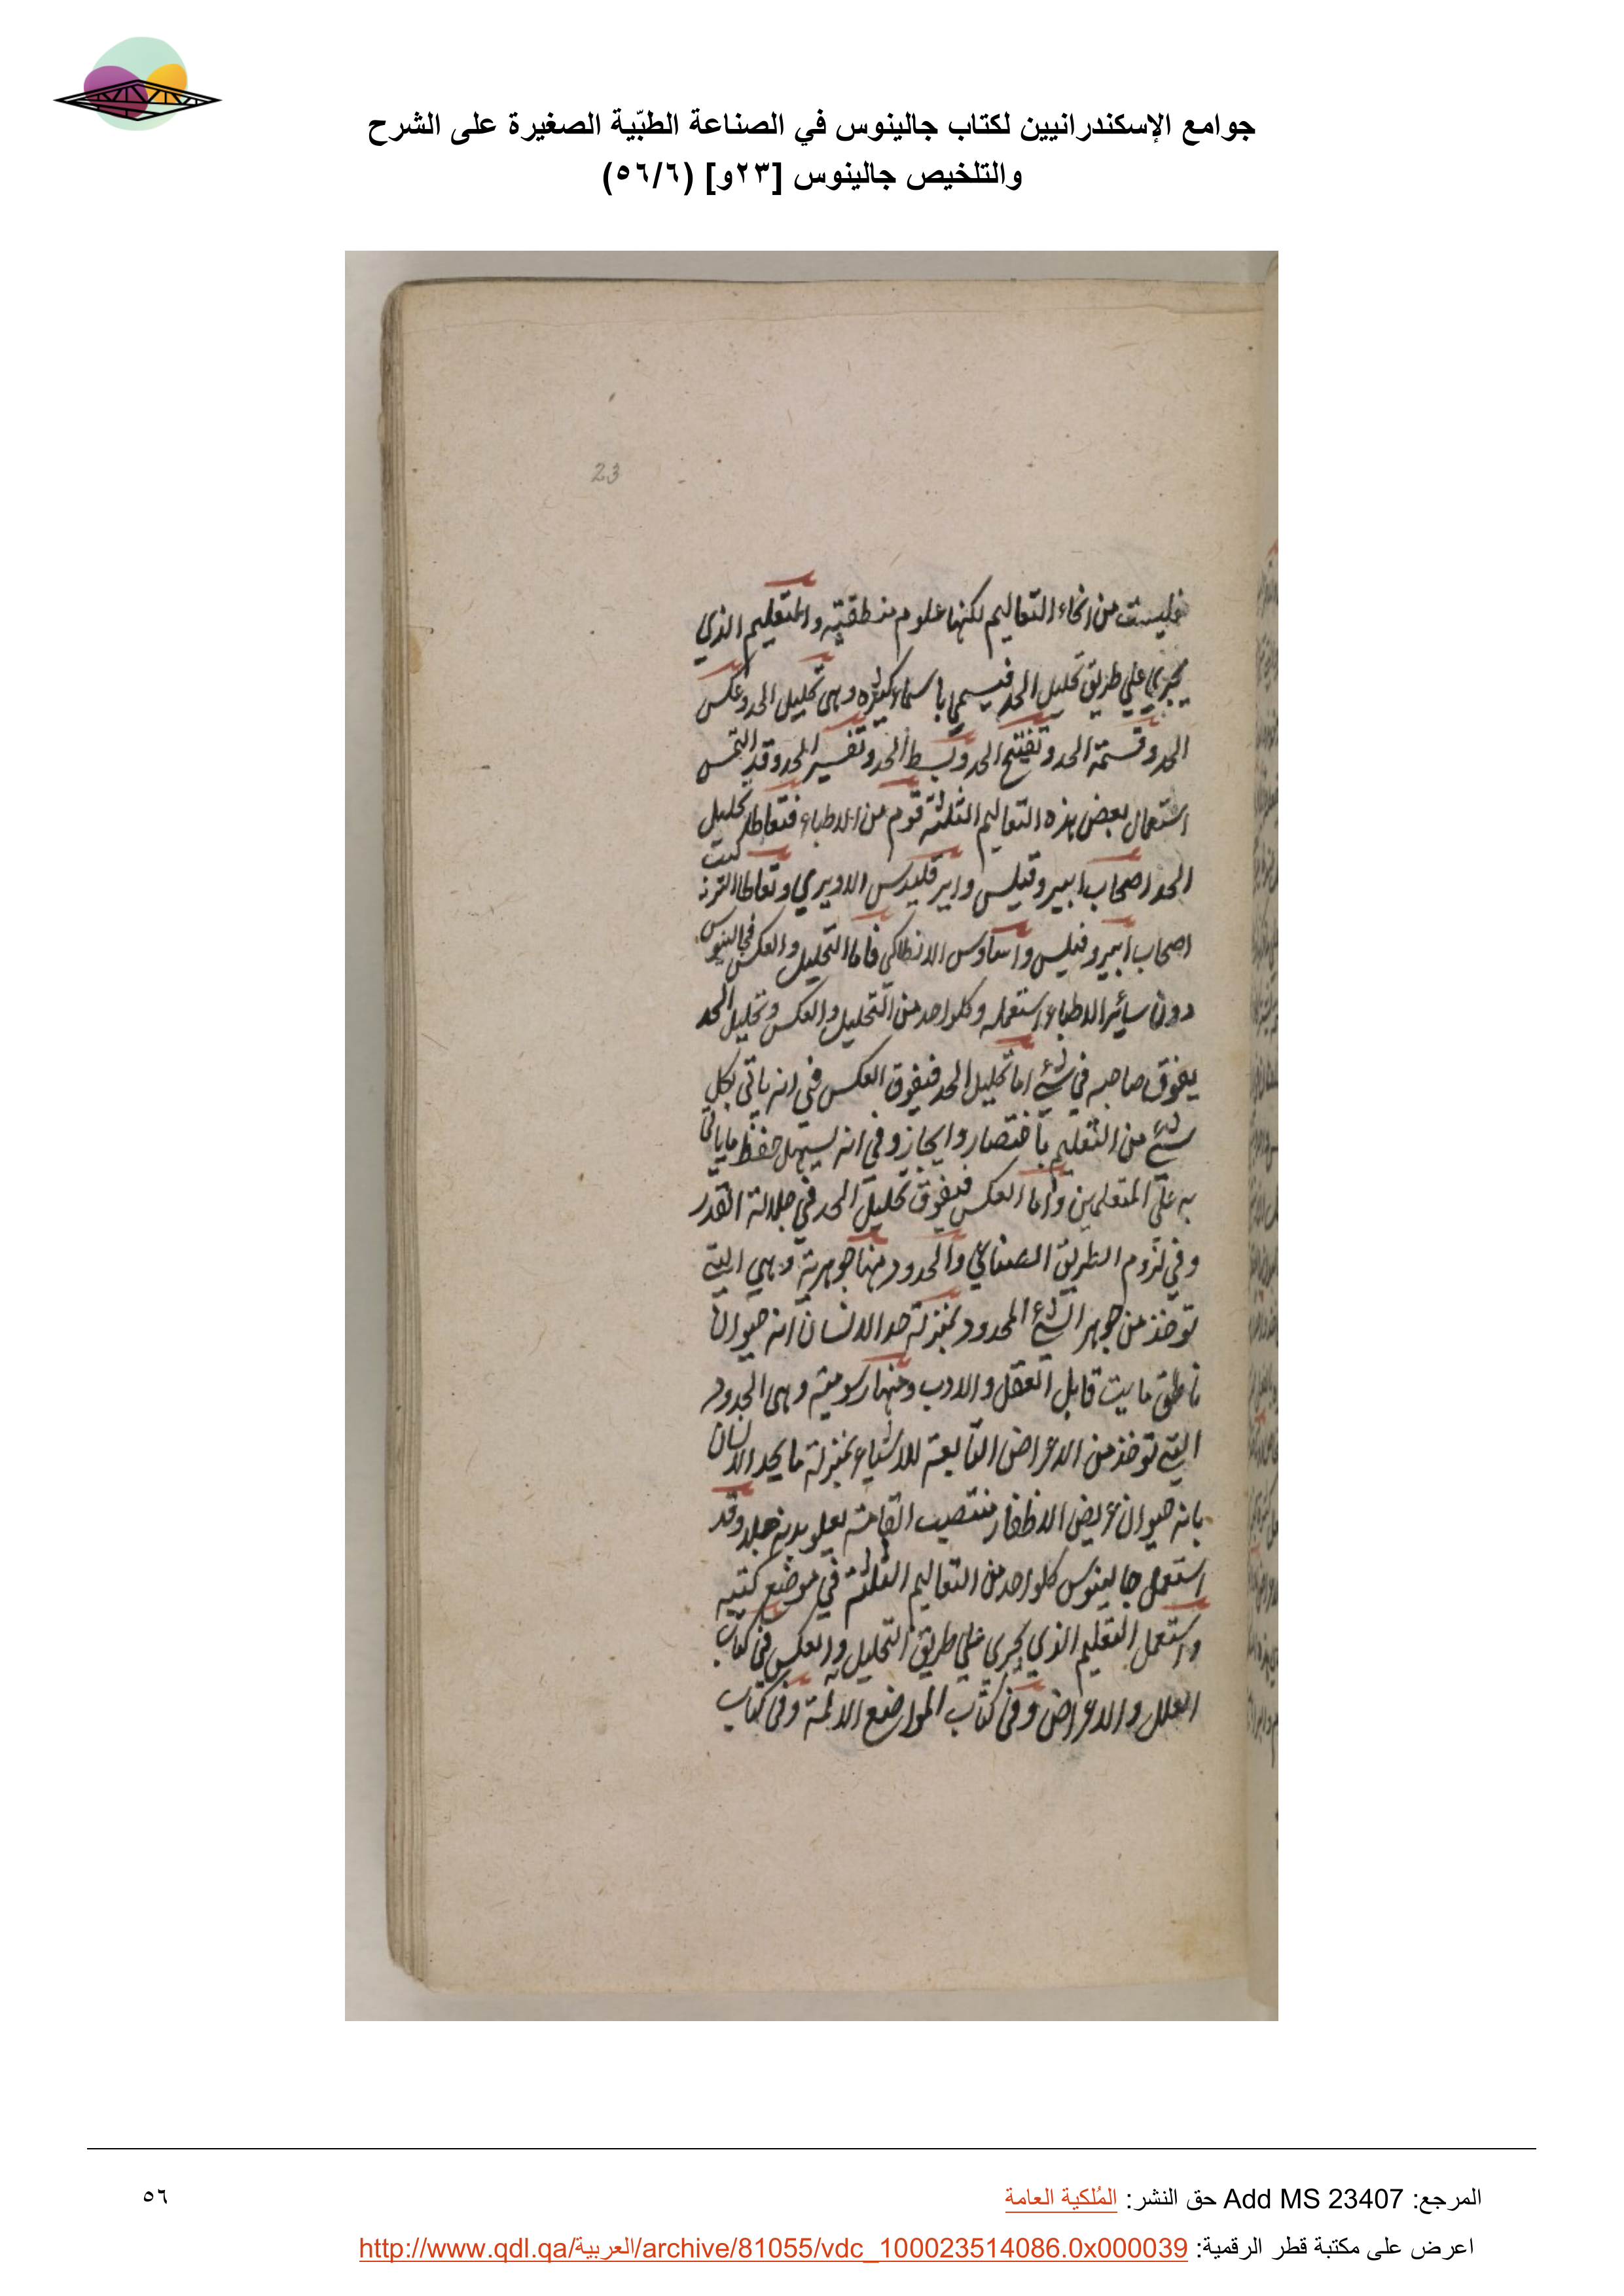 جوامع الإسكندرانيين لكتاب جالينوس في الصناعة الطبّية الصغيرة على الشرح
والتلخيص جالينوس [٢٣و] (٥٦/٦)
23
فليست من انحاء التعاليم لكنها علوم منطقيّة والتعليم الذي
يجري علي طريق تحليل الحد فيسمي باسماء كثيره وهي تحليل الحد وعكس
الحد وقسمة الحد وتفتيح الحد وبسط الحد وتفسير الحد وقد التمس
استعمال بعض هذه التعاليم الثلثة قوم من الاطباء فتعاطا تحليل
الحد اصحاب ايبروقيلس وايرقليدس الاويري وتعاطا التر كيب
اصحاب ايبروفيلس الانطاكي فاما التحليل والعكس فجالينوس
دون سائر الاطباء استعمله وكلواحد من التحليل والعكس وتحليل الحد
يفوق صاحبه في شئ اما تحليل الحد فيفوق العكس في انه ياتي بكل
شئ من التعليم باختصار وايجاز وفي انه يسهل حفظ ما ياتي
به علي المتعلمين واما العكس فيفوق تحليل الحد في جلالة القدر
وفي لزوم الطريق الصناعي والحدود منها جوهرية وهي التي
توخذ من جوهر الشئ المحدود بمنزلة حد الانسان انه حيوان
ناطق مايت قابل العقل والادب ومنها رسومية وهي الحدود
التي توخذ من الاعراض التابعة للاشياء بمنزلة ما يحد الانسان
بانه حيوان عريض الاظفار منتصب القامة يعلو بدنه جلد وقد
استعمل جالينوس كلواحد من التعاليم الثلثة في موضع كتبه
واستعمل التعليم الذي يجري علي طريق التحليل والعكس في كتاب
العلل والاعراض وفي كتاب المواضع الالمة وفي كتاب
المرجع: Add MS 23407 حق النشر: المُلكية العامة
٥٦
اعرض على مكتبة قطر الرقمية: http://www.qdl.qa/العربية/archive/81055/vdc_100023514086.0x000039